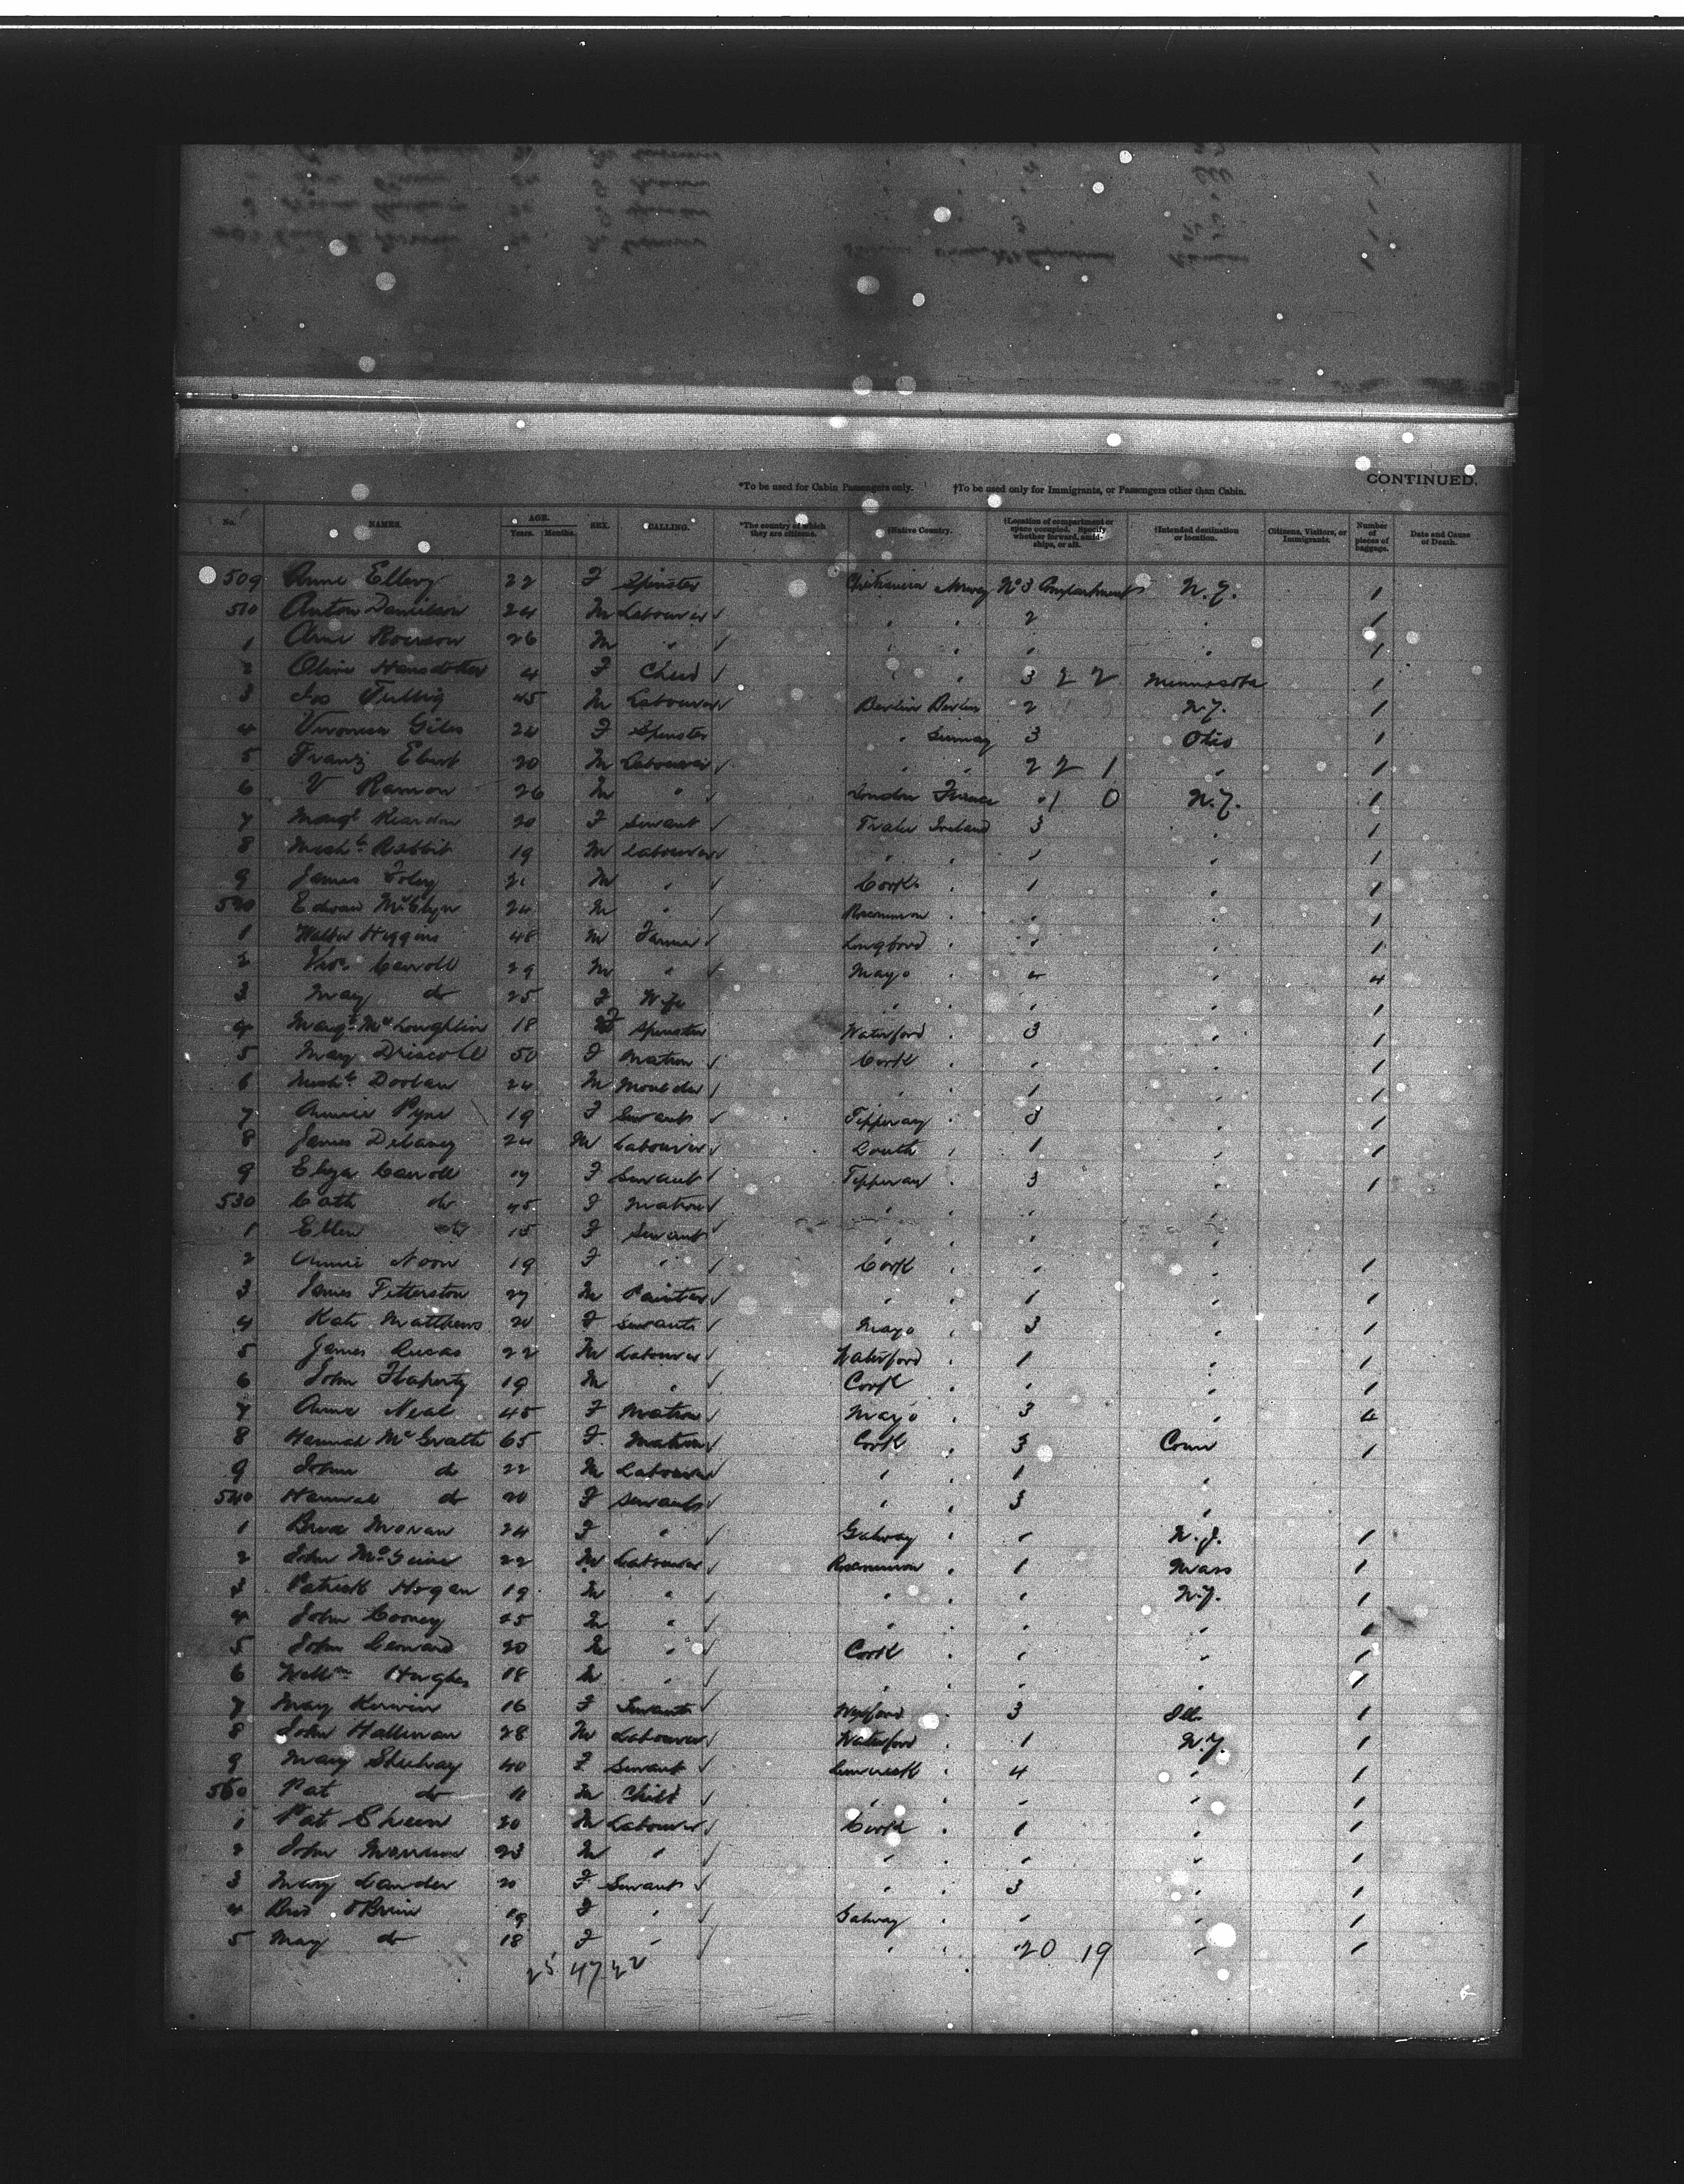 CONTINUED.
*To be used for Cabin Passengers only. †To be used only for Immigrants, or Passengers other than Cabin.
No. NAMES. AGE. Years. Months. SEX. CALLING. *The country of which they are citizens. †Native Country. †Location of compartment or space occupied. Specify whether forward, amidships, or aft. †Intended destination or location. Citizens, Visitors, or Immigrants. Number of pieces of baggage. Date and Cause of Death.
509 Anne 22 F Spinster Norway No 3 Compartment N.Y. 1
510 Anton Danielson 24 M Labourer " " 2 " 1
1 Arne 26 M " " " " " 1
2 Hansdotter 4 F Child " " 3 2 2 Minnesota 1
3 Jos 45 M Labourer Berlin 2 N.Y. 1
4 Veronica Giles 24 F Spinster " 3 Ohio 1
5 Franz Ebert 20 M Labourer " " 2 2 1 " 1
6 V Ramon 26 M " London France " 1 0 N.Y. 1
7 Margt Reardon 20 F Servant Tralee Ireland 3 " 1
8 Michl 19 M Labourer " " 1 " 1
9 James Foley 21 M " Cork " 1 " 1
520 24 M " Roscommon " " " 1
1 Walter Higgins 48 M Farmer Longford " " " 1
2 Carroll 29 M " Mayo " 4 " 4
3 May do 25 F Wife " " " " 1
4 Margt McLoughlin 18 F Spinster Waterford " 3 " 1
5 May Driscoll 50 F Matron Cork " " " 1
6 Michl Doolan 24 M Moulder " " 1 " 1
7 Annie Pyne 19 F Servant Tipperary " 3 " 1
8 James Delaney 24 M Labourer Louth " 1 " 1
9 Eliza Carroll 17 F Servant Tipperary " 3 1
530 Cath do 45 F Matron " " " "
1 Ellen do 15 F Servant " " " "
2 Annie Noon 19 F " Cork " " 1
3 James Fetterston 27 M Painter " " 1 " 1
4 Kate Matthews 20 F Servant Mayo " 3 " 1
5 James Lucas 22 M Labourer Waterford " 1 " 1
6 John Flaherty 19 M " Cork " " " 1
7 Anne Neal 45 F Matron Mayo " 3 " 4
8 Hannah McGrath 65 F Matron Cork " 3 Conn 1
9 John do 22 M Labourer " " 1 "
540 Hannah do 20 F Servant " " 3 "
1 Moran 24 F " Galway " " N.J. 1
2 John McGuire 22 M Labourer Roscommon " 1 Mass 1
3 Patrick Hogan 19 M " " " " N.Y. 1
4 John Cooney 25 M " " " " " 1
5 John Leonard 20 M " Cork " " " 1
6 Willm Hughes 18 M " " " " " 1
7 May Kerwin 16 F Servant Wexford 3 Ill. 1
8 John Hallinan 28 M Labourer Waterford " 1 N.Y. 1
9 Mary Sheehay 40 F Servant Limerick " 4 " 1
550 Pat do 11 M Child " " " " 1
1 Pat Sheen 20 M Labourer Cork " 1 " 1
2 John 23 M " " " " " 1
3 Mary Lander 20 F Servant " " 3 " 1
4 O'Brien 19 F " Galway " " " 1
5 May do 18 F " " " " 20 19 " 1
25 47 22